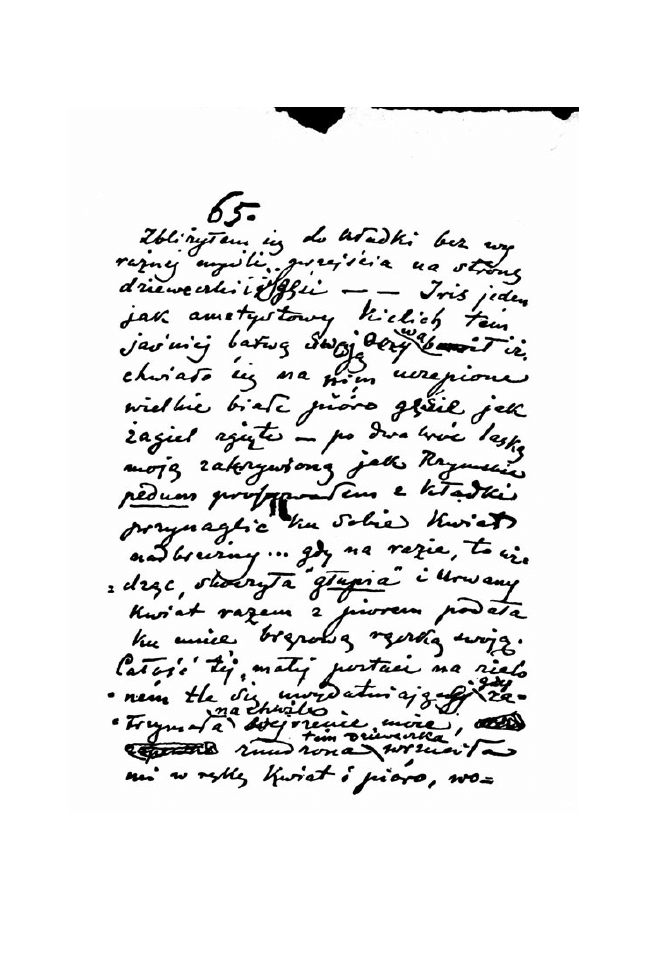 65.
Zbliżyłem się do kładki bez wy
raźnej myśli przejścia na stronę
dzieweczki i gęsi — — Iris jeden
jak ametystowy kielich tem
jaśniej barwą swoją
chwiało się na nim uczepione
wielkie białe pióro gęsie jak
żagiel zgięte — po dwakroć laską
moją zakrzywioną jak Rzymskie
pedum z kładki
przynaglić ku sobie kwiat
nadbrzeżny... gdy na razie, to wi-
=dząc, skoczyła "głupia" i urwany
kwiat razem z piórem podała
ku mnie brązową rączką swoją.
Całość tej małej postaci na zielo
nem tle się uwydatniającej gdy za=
=trzymała na chwilę wejrzenie moje,
zmudzona tem dzieweczka wrzuciła
mi w rękę kwiat i pióro, wo=